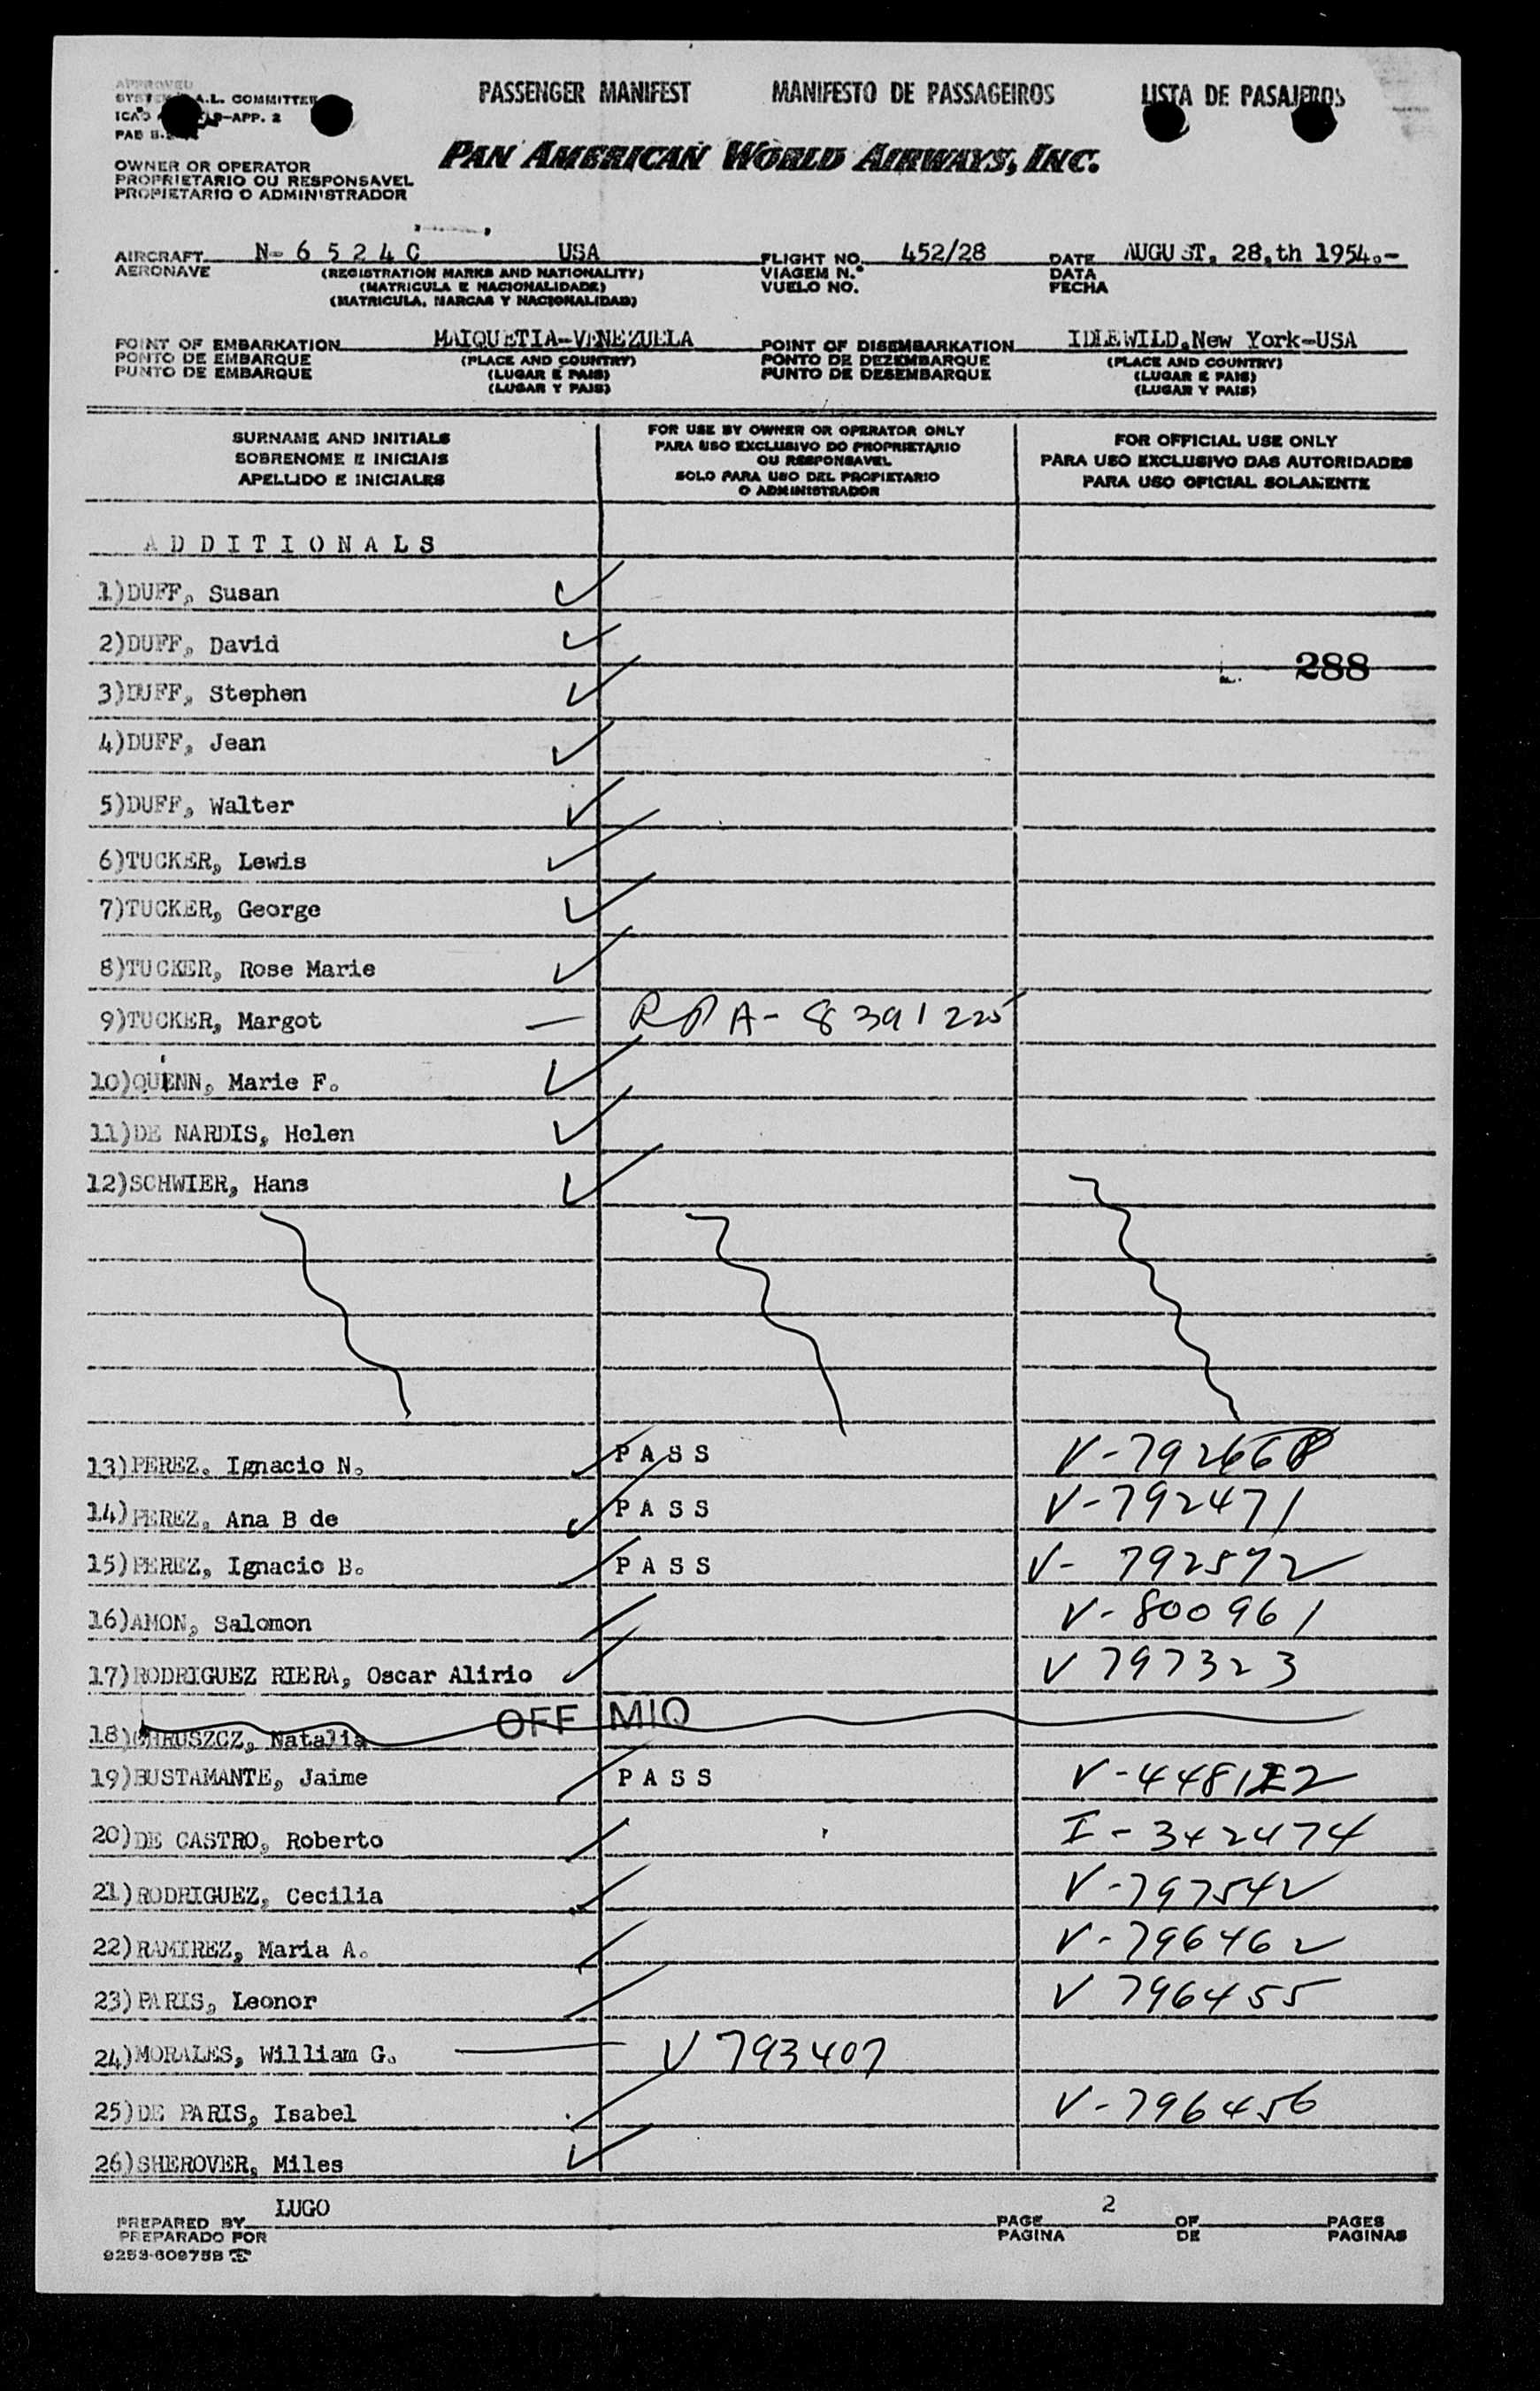 APPROVED
A.L. COMMITTEE
ICAO -APP. 2
PAB
PASSENGER MANIFEST MANIFESTO DE PASSAGEIROS LISTA DE PASAJEROS
PAN AMERICAN WORLD AIRWAYS, INC.
OWNER OR OPERATOR
PROPRIETARIO OU RESPONSAVEL
PROPIETARIO O ADMINISTRADOR
AIRCRAFT N- 6 5 2 4 C USA FLIGHT NO. 452/28 DATE AUGUST. 28.th 1954.-
AERONAVE (REGISTRATION MARKS AND NATIONALITY) VIAGEM N.º DATA
(MATRICULA E NACIONALIDADE) VUELO NO. FECHA
(MATRICULA, MARCAS Y NACIONALIDAD)
POINT OF EMBARKATION MAIQUETIA-VENEZUELA POINT OF DISEMBARKATION IDLEWILD,New York-USA
PONTO DE EMBARQUE (PLACE AND COUNTRY) PONTO DE DEZEMBARQUE (PLACE AND COUNTRY)
PUNTO DE EMBARQUE (LUGAR E PAIS) PUNTO DE DESEMBARQUE (LUGAR E PAIS)
(LUGAR Y PAIS) (LUGAR Y PAIS)
SURNAME AND INITIALS
SOBRENOME E INICIAIS
APELLIDO E INICIALES
FOR USE BY OWNER OR OPERATOR ONLY
PARA USO EXCLUSIVO DO PROPRIETARIO
OU RESPONSAVEL
SOLO PARA USO DEL PROPIETARIO
O ADMINISTRADOR
FOR OFFICIAL USE ONLY
PARA USO EXCLUSIVO DAS AUTORIDADES
PARA USO OFICIAL SOLAMENTE
A D D I T I O N A L S
1)DUFF, Susan
2)DUFF, David
288
3)DUFF, Stephen
4)DUFF, Jean
5)DUFF, Walter
6)TUCKER, Lewis
7)TUCKER, George
8)TUCKER, Rose Marie
9)TUCKER, Margot — A- 8391225
10)QUENN, Marie F.
11)DE NARDIS, Helen
12)SCHWIER, Hans
13)PEREZ, Ignacio N. P A S S
14)PEREZ, Ana B de P A S S V-792471
15)PEREZ, Ignacio B. P A S S V- 792572
16)AMON, Salomon V-800961
17)RODRIGUEZ RIERA, Oscar Alirio V 797323
OFF MIQ
18)CHRUSZCZ, Natalia
19)BUSTAMANTE, Jaime P A S S
20)DE CASTRO, Roberto I-342474
21)RODRIGUEZ, Cecilia V-797542
22)RAMIREZ, Maria A. V-796462
23)PARIS, Leonor V 796455
24)MORALES, William G. — V 793407
25)DE PARIS, Isabel V-796456
26)SHEROVER, Miles
PREPARED BY LUGO PAGE 2 OF PAGES
PREPARADO POR PAGINA DE PAGINAS
9253-60975B